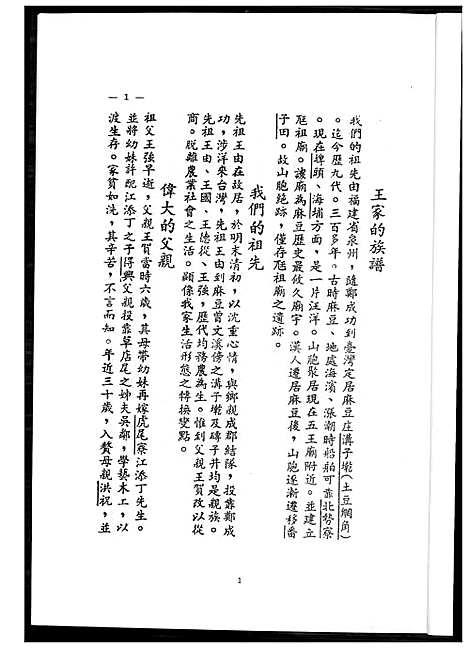 王家的族譜
我們的祖先由福建省泉州，隨鄭成功到臺灣定居麻豆庄溝子墘（土豆綢角）
。迄今歷九代。三百多年。古時麻豆、地處海濱、漲潮時船舶可靠北勢寮
。現在埤頭、海埔方面，是一片汪洋。山胞聚居現在五王廟附近。並建立
尫祖廟。該廟為麻豆歷史最攸久廟宇。漢人遷居麻豆後，山胞逐漸遷移番
子田。故山胞絶跡，僅存尫祖廟之遺跡。
我們的祖先
先祖王由在故居，於明末清初，以沈重心情，與鄉親成郡結隊，投靠鄭成
功，涉洋來台灣，先祖王由到麻豆曾文溪傍之溝子墘及碑子井均是親族。
先祖王由、王國、王德從、王強，歷代均務農為生。惟到父親王賀改以從
商。脱離農業社會之生活。顯係我家生活形態之轉換變點。
偉大的父親
祖父王強早逝，父親王賀當時六歲，其母帶幼妹再嫁虎尾寮江添丁先生。
並將幼妹許配江添丁之子得興父親投靠草店尾之姊夫吳鄰，學藝木工，以
渡生存。家貧如洗，其辛苦，不言而知。年近三十歲，入贅母親洪祝，並
— 1 —
1